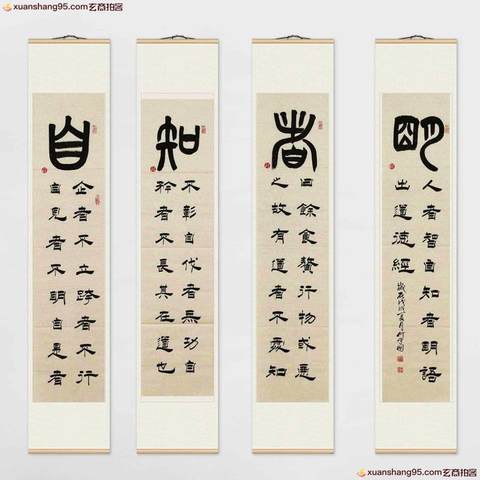 xuanshang95.com玄商拍客
xuanshang95.com玄商拍客
自
企者不立跨者不行
自見者不明自是者
知
不彰自伐者無功自
矜者不長其在道也
者
曰餘食贅行物或惡
之故有道者不處知
明
人者智自知者明語
出道德經
xuanshang95.com玄商拍客